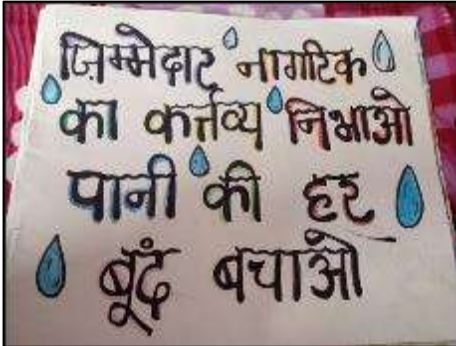 जिम्मेदार नागरिक
का कर्त्तव्य निभाओ
पानी की हर
बूंद बचाओ